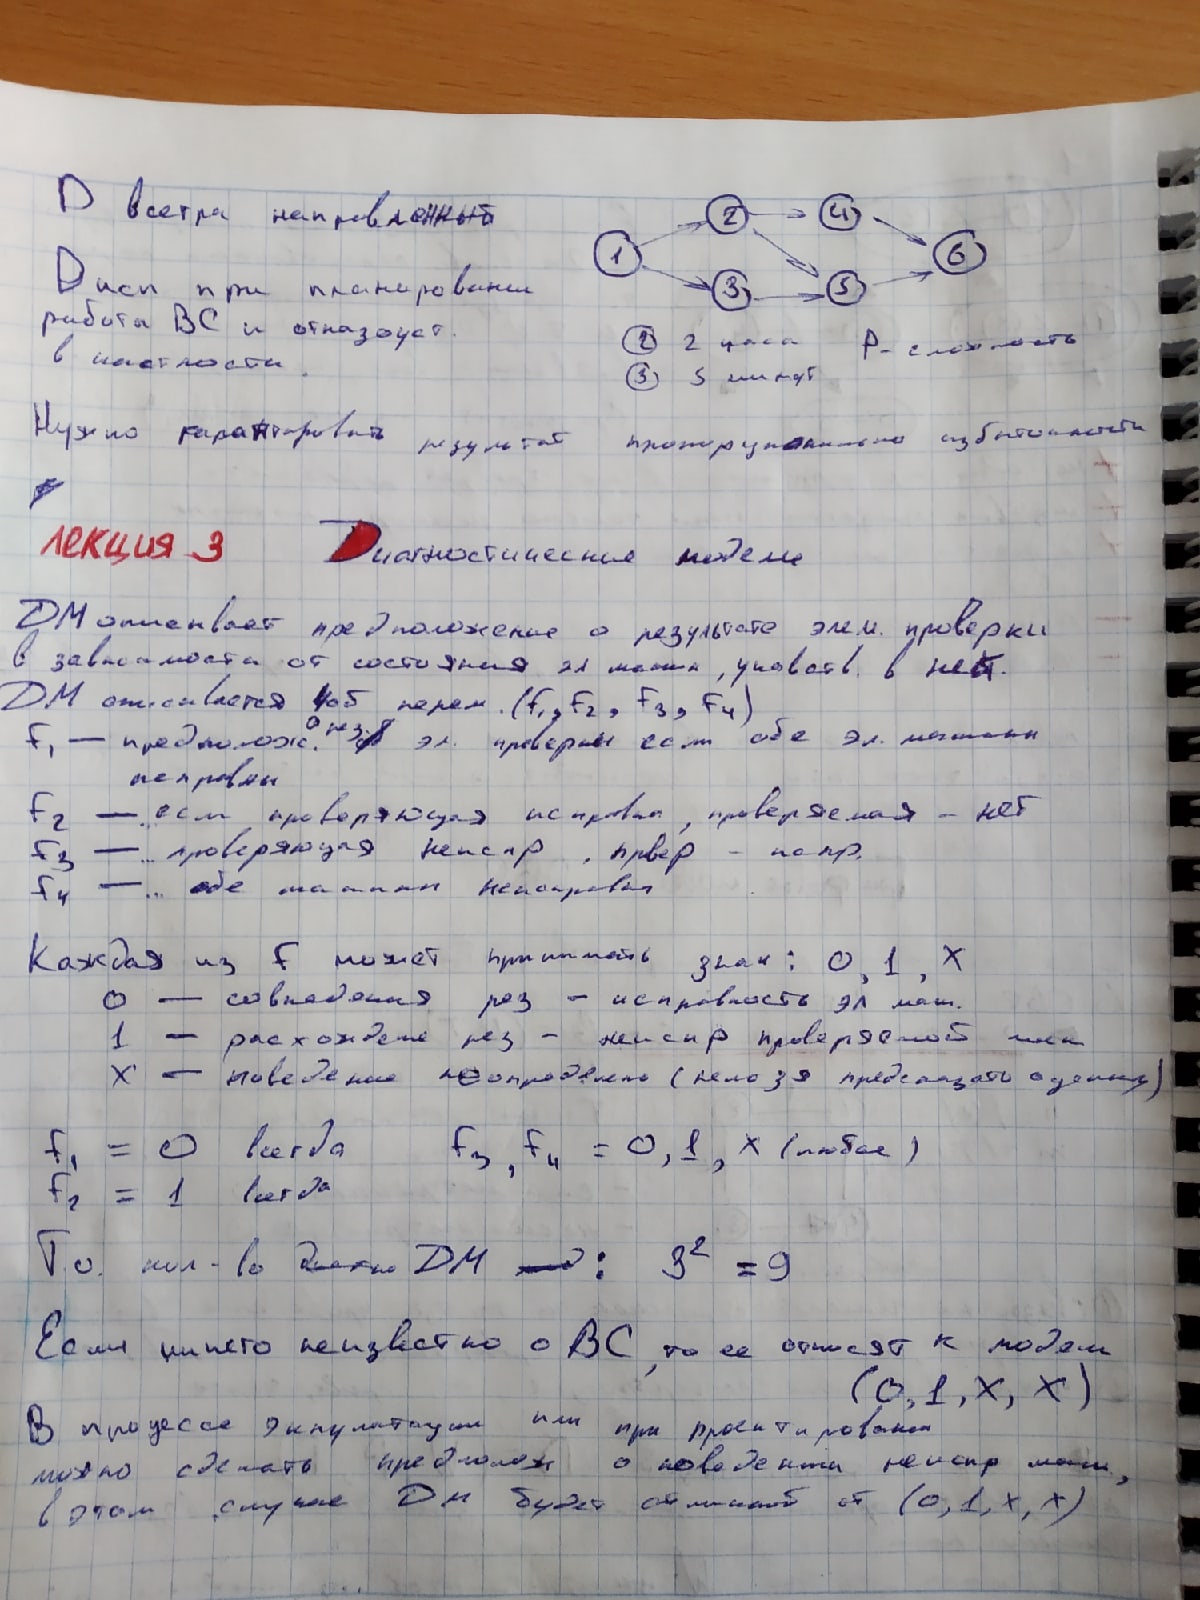 D всегда направленный
1 2 3 4 5 6
D исп при планировании
работа ВС и отказоуст.
в частности.
② 2 часа P - сложность
③ 5 минут
Нужно гарантировать результат пропорционально избыточности
ЛЕКЦИЯ 3 Диагностические модели
DM описывает предположение о результате элем. проверки
в зависимости от состояния эл машин, участв. в ней.
DM описывается 4об перем. (f₁, f₂, f₃, f₄)
f₁ — предполож. о рез. эл. проверки если обе эл. машины
исправны
f₂ — ... если проверяющая исправна, проверяемая - нет
f₃ — ... проверяющая неиспр, првер - испр.
f₄ — ... обе машины неисправны
Каждая из f может принимать знач: 0, 1, X
0 — совпадения рез - исправность эл маш.
1 — расхождение рез - неиспр проверяемой маш
X — поведение неопределено (нельзя предсказать оценку)
f₁ = 0 всегда f₃, f₄ = 0, 1, x (любое)
f₂ = 1 всегда
Т.о. кол-во DM : 3² = 9
Если ничего неизвестно о ВС, то ее относят к модели
(0, 1, X, X)
В процессе эксплуатации или при проектировании
можно сделать предполож о поведении неиспр маш,
в этом случае DM будет отличной от (0, 1, x, x)